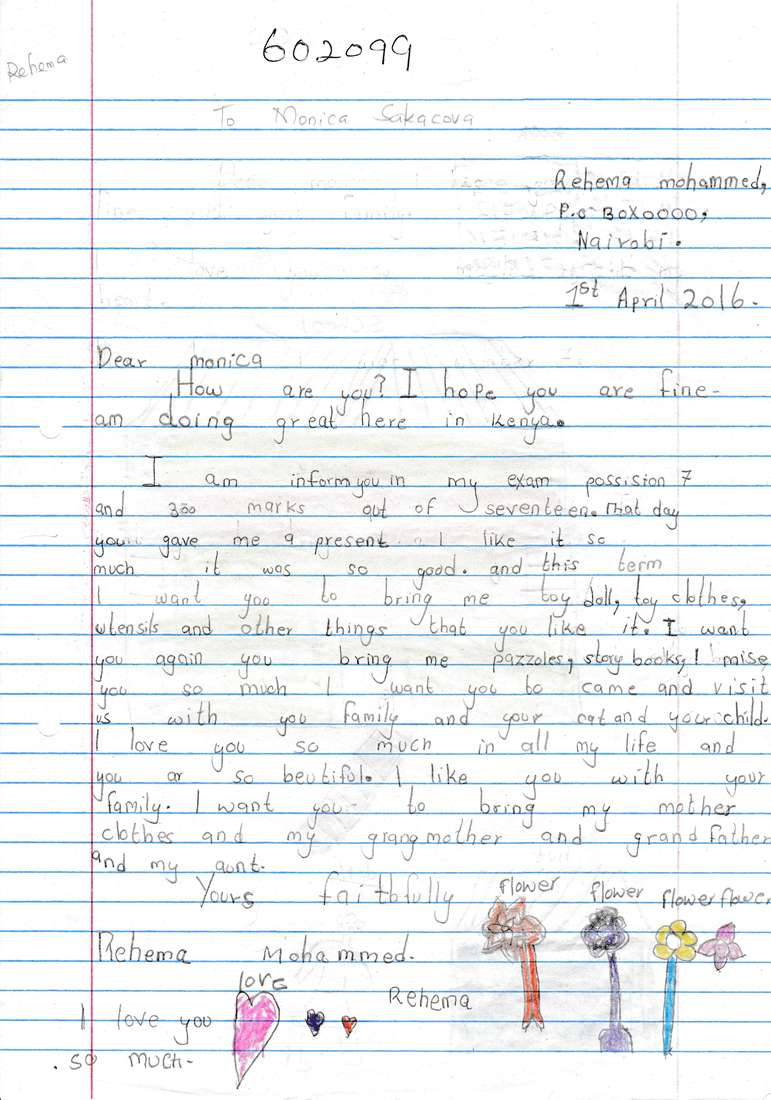 602099
Rehema
To Monica Sakacova
Rehema mohammed,
P.o BOX0000,
Nairobi.
1st April 2016.
Dear monica
How are you? I hope you are fine-
am doing great here in Kenya.
I am inform you in my exam possision 7
and 300 marks out of seventeen. That day
you gave me a present I like it so
much it was so good. and this term
I want you to bring me toy doll, toy clothes,
utensils and other things that you like it. I want
you again you bring me pazzoles, story books, I mise
you so much I want you to came and visit
us with you family and your cat and your child.
I love you so much in all my life and
you ar so beutiful. I like you with your
family. I want you to bring my mother
clothes and my grangmother and grand father
and my aunt.
Yours faithfully
flower flower flower flower
Rehema Mohammed.
love
Rehema
I love you
so much-